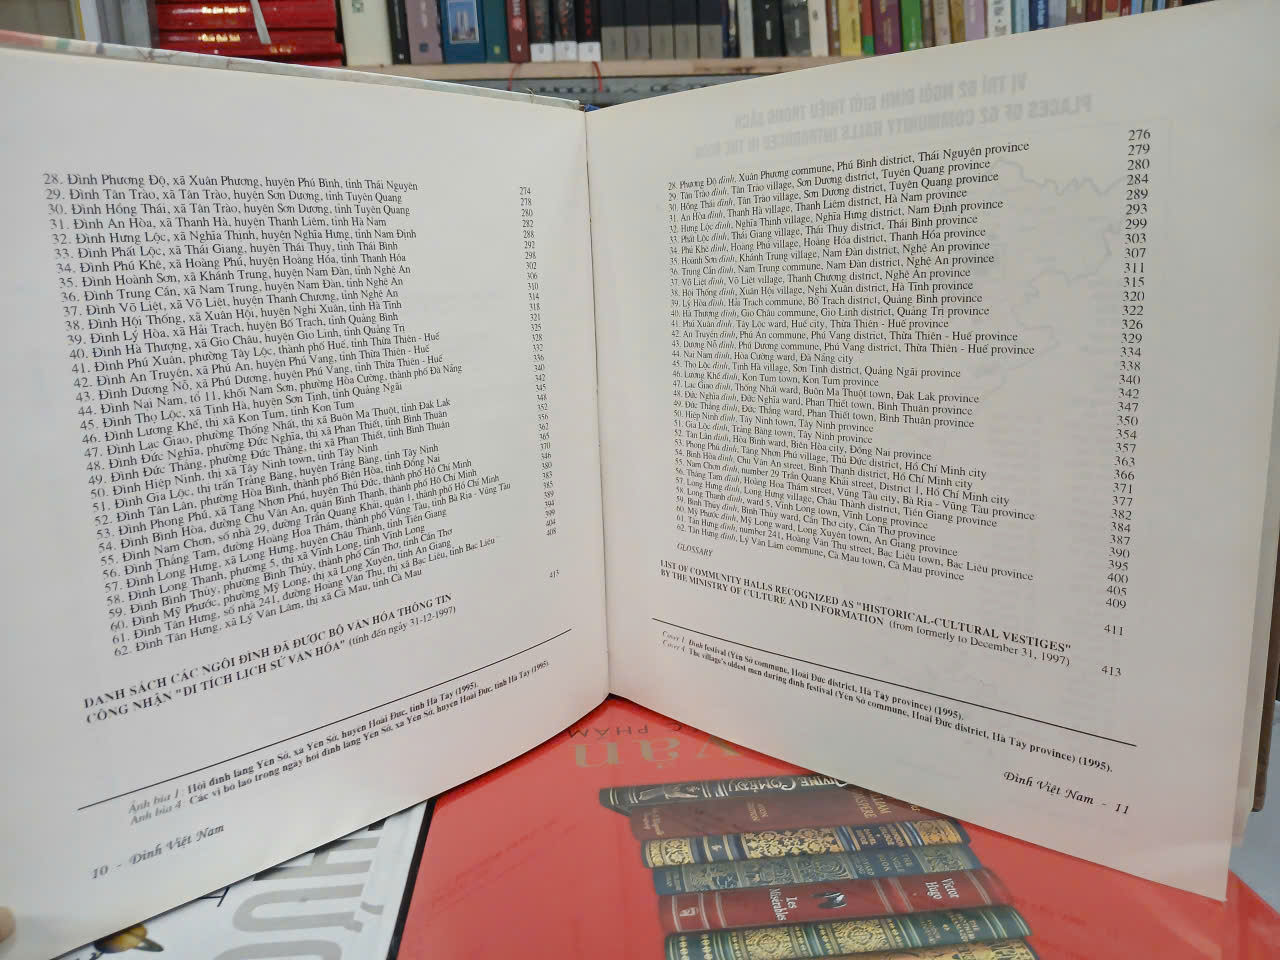 28. Đình Phương Độ, xã Xuân Phương, huyện Phú Bình, tỉnh Thái Nguyên 274
29. Đình Tân Trào, xã Tân Trào, huyện Sơn Dương, tỉnh Tuyên Quang 278
30. Đình Hồng Thái, xã Tân Trào, huyện Sơn Dương, tỉnh Tuyên Quang 280
31. Đình An Hòa, xã Thanh Hà, huyện Thanh Liêm, tỉnh Hà Nam 282
32. Đình Hưng Lộc, xã Nghĩa Thịnh, huyện Nghĩa Hưng, tỉnh Nam Định 288
33. Đình Phất Lộc, xã Thái Giang, huyện Thái Thuỵ, tỉnh Thái Bình 292
34. Đình Phú Khê, xã Hoàng Phú, huyện Hoàng Hóa, tỉnh Thanh Hóa 298
35. Đình Hoành Sơn, xã Khánh Trung, huyện Nam Đàn, tỉnh Nghệ An 302
36. Đình Trung Cần, xã Nam Trung, huyện Nam Đàn, tỉnh Nghệ An 306
37. Đình Võ Liệt, xã Võ Liệt, huyện Thanh Chương, tỉnh Nghệ An 310
38. Đình Hội Thống, xã Xuân Hội, huyện Nghi Xuân, tỉnh Hà Tĩnh 314
39. Đình Lý Hòa, xã Hải Trạch, huyện Bố Trạch, tỉnh Quảng Bình 318
40. Đình Hà Thượng, xã Gio Châu, huyện Gio Linh, tỉnh Quảng Trị 321
41. Đình Phú Xuân, phường Tây Lộc, thành phố Huế, tỉnh Thừa Thiên - Huế 325
42. Đình An Truyền, xã Phú An, huyện Phú Vang, tỉnh Thừa Thiên - Huế 328
43. Đình Dương Nỗ, xã Phú Dương, huyện Phú Vang, tỉnh Thừa Thiên - Huế 332
44. Đình Nai Nam, tổ 11, khối Nam Sơn, phường Hòa Cường, thành phố Đà Nẵng 336
45. Đình Thọ Lộc, xã Tịnh Hà, huyện Sơn Tịnh, tỉnh Quảng Ngãi 340
46. Đình Lương Khế, thị xã Kon Tum, tỉnh Kon Tum 342
47. Đình Lạc Giao, phường Thống Nhất, thị xã Buôn Ma Thuột, tỉnh Đak Lak 345
48. Đình Đức Nghĩa, phường Đức Nghĩa, thị xã Phan Thiết, tỉnh Bình Thuận 348
49. Đình Đức Thắng, phường Đức Thắng, thị xã Phan Thiết, tỉnh Bình Thuận 352
50. Đình Hiệp Ninh, thị xã Tây Ninh town, tỉnh Tây Ninh 356
51. Đình Gia Lộc, thị trấn Trảng Bàng, huyện Trảng Bàng, tỉnh Tây Ninh 362
52. Đình Tân Lân, phường Hòa Bình, thành phố Biên Hòa, tỉnh Đồng Nai 365
53. Đình Phong Phú, xã Tăng Nhơn Phú, huyện Thủ Đức, thành phố Hồ Chí Minh 370
54. Đình Bình Hòa, đường Chu Văn An, quận Bình Thạnh, thành phố Hồ Chí Minh 346
55. Đình Nam Chơn, số nhà 29, đường Trần Quang Khải, quận 1, thành phố Hồ Chí Minh 380
56. Đình Thắng Tam, đường Hoàng Hoa Thám, thành phố Vũng Tàu, tỉnh Bà Rịa - Vũng Tàu 383
57. Đình Long Hưng, xã Long Hưng, huyện Châu Thành, tỉnh Tiền Giang 385
58. Đình Long Thanh, phường 5, thị xã Vĩnh Long, tỉnh Vĩnh Long 389
59. Đình Bình Thủy, phường Bình Thủy, thành phố Cần Thơ, tỉnh Cần Thơ 394
60. Đình Mỹ Phước, phường Mỹ Long, thị xã Long Xuyên, tỉnh An Giang 399
61. Đình Tân Hưng, số nhà 241, đường Hoàng Văn Thụ, thị xã Bạc Liêu, tỉnh Bạc Liêu 404
62. Đình Tân Hưng, xã Lý Văn Lâm, thị xã Cà Mau, tỉnh Cà Mau 408
DANH SÁCH CÁC NGÔI ĐÌNH ĐÃ ĐƯỢC BỘ VĂN HÓA THÔNG TIN
CÔNG NHẬN "DI TÍCH LỊCH SỬ VĂN HÓA" (tính đến ngày 31-12-1997) 413
Ảnh bìa 1: Hội đình làng Yên Sở, xã Yên Sở, huyện Hoài Đức, tỉnh Hà Tây (1995).
Ảnh bìa 4: Các vị bô lão trong ngày hội đình làng Yên Sở, xã Yên Sở, huyện Hoài Đức, tỉnh Hà Tây (1995).
10 - Đình Việt Nam
28. Phương Độ đình, Xuân Phương commune, Phú Bình district, Thái Nguyên province 276
29. Tân Trào đình, Tân Trào village, Sơn Dương district, Tuyên Quang province 279
30. Hồng Thái đình, Tân Trào village, Sơn Dương district, Tuyên Quang province 280
31. An Hòa đình, Thanh Hà village, Thanh Liêm district, Hà Nam province 284
32. Hưng Lộc đình, Nghĩa Thịnh village, Nghĩa Hưng district, Nam Định province 289
33. Phất Lộc đình, Thái Giang village, Thái Thuỵ district, Thái Bình province 293
34. Phú Khê đình, Hoàng Phú village, Hoàng Hóa district, Thanh Hóa province 299
35. Hoành Sơn đình, Khánh Trung village, Nam Đàn district, Nghệ An province 303
36. Trung Cần đình, Nam Trung commune, Nam Đàn district, Nghệ An province 307
37. Võ Liệt đình, Võ Liệt village, Thanh Chương district, Nghệ An province 311
38. Hội Thống đình, Xuân Hội village, Nghi Xuân district, Hà Tĩnh province 315
39. Lý Hòa đình, Hải Trạch commune, Bố Trạch district, Quảng Bình province 320
40. Hà Thượng đình, Gio Châu commune, Gio Linh district, Quảng Trị province 322
41. Phú Xuân đình, Tây Lộc ward, Huế city, Thừa Thiên - Huế province 326
42. An Truyền đình, Phú An commune, Phú Vang district, Thừa Thiên - Huế province 329
43. Dương Nỗ đình, Phú Dương commune, Phú Vang district, Thừa Thiên - Huế province 334
44. Nai Nam đình, Hòa Cường ward, Đà Nẵng city 338
45. Thọ Lộc đình, Tịnh Hà village, Sơn Tịnh district, Quảng Ngãi province 340
46. Lương Khế đình, Kon Tum town, Kon Tum province 342
47. Lạc Giao đình, Thống Nhất ward, Buôn Ma Thuột town, Đak Lak province 347
48. Đức Nghĩa đình, Đức Nghĩa ward, Phan Thiết town, Bình Thuận province 350
49. Đức Thắng đình, Đức Thắng ward, Phan Thiết town, Bình Thuận province 354
50. Hiệp Ninh đình, Tây Ninh town, Tây Ninh province 357
51. Gia Lộc đình, Trảng Bàng town, Tây Ninh province 363
52. Tân Lân đình, Hòa Bình ward, Biên Hòa city, Đồng Nai province 366
53. Phong Phú đình, Tăng Nhơn Phú village, Thủ Đức district, Hồ Chí Minh city 371
54. Bình Hòa đình, Chu Văn An street, Bình Thạnh district, Hồ Chí Minh city 377
55. Nam Chơn đình, number 29 Trần Quang Khải street, District 1, Hồ Chí Minh city 382
56. Thắng Tam đình, Hoàng Hoa Thám street, Vũng Tàu city, Bà Rịa - Vũng Tàu province 384
57. Long Hưng đình, Long Hưng village, Châu Thành district, Tiền Giang province 387
58. Long Thanh đình, ward 5, Vĩnh Long town, Vĩnh Long province 390
59. Bình Thủy đình, Bình Thủy ward, Cần Thơ city, Cần Thơ 395
60. Mỹ Phước đình, Mỹ Long ward, Long Xuyên town, An Giang province 400
61. Tân Hưng đình, number 241, Hoàng Văn Thụ street, Bạc Liêu town, Bạc Liêu province 405
62. Tân Hưng đình, Lý Văn Lâm commune, Cà Mau town, Cà Mau province 409
GLOSSARY 411
LIST OF COMMUNITY HALLS RECOGNIZED AS "HISTORICAL-CULTURAL VESTIGES"
BY THE MINISTRY OF CULTURE AND INFORMATION (from formerly to December 31, 1997) 413
Cover 1: Đình festival (Yên Sở commune, Hoài Đức district, Hà Tây province) (1995).
Cover 4: The village's oldest men during đình festival (Yên Sở commune, Hoài Đức district, Hà Tây province) (1995).
Đình Việt Nam - 11
DIVINE COMEDY
Les Misérables
Victor Hugo